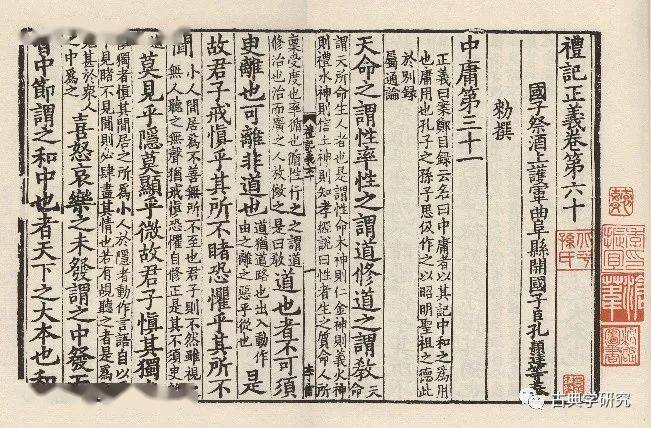 禮記正義卷第六十
國子祭酒上護軍曲阜縣開國子臣孔穎達等奉
勑撰
中庸第三十一
正義曰案鄭目録云名曰中庸者以其記中和之為用
也庸用也孔子之孫子思伋作之以昭明聖祖之德此
於别録
屬通論
天命之謂性率性之謂道修道之謂教 天
謂天所命生人者也是謂性命木神則仁金神則義火神
則禮水神則信土神則知孝經説曰性者生之質命人所
稟受度也率循也循性行之之謂道
修治也治而廣之人放傚之是曰教
道也者不可須
臾離也可離非道也
道猶道路也出入動作
由之離之惡乎從也
是
故君子戒慎乎其所不睹恐懼乎其所不
聞
小人閒居為不善無所不至也君子則不然雖視
無人聽之無聲猶戒慎恐懼自修正是其不須臾
莫見乎隱莫顯乎微故君子慎其獨
慎獨者慎其閒居之所為小人於隱者動作言語自以
不見睹不見聞則必肆盡其情也若有覘聽之者是為
見甚於衆人
之中為之
喜怒哀樂之未發謂之中發而
皆中節謂之和中也者天下之大本也和
古典学研究